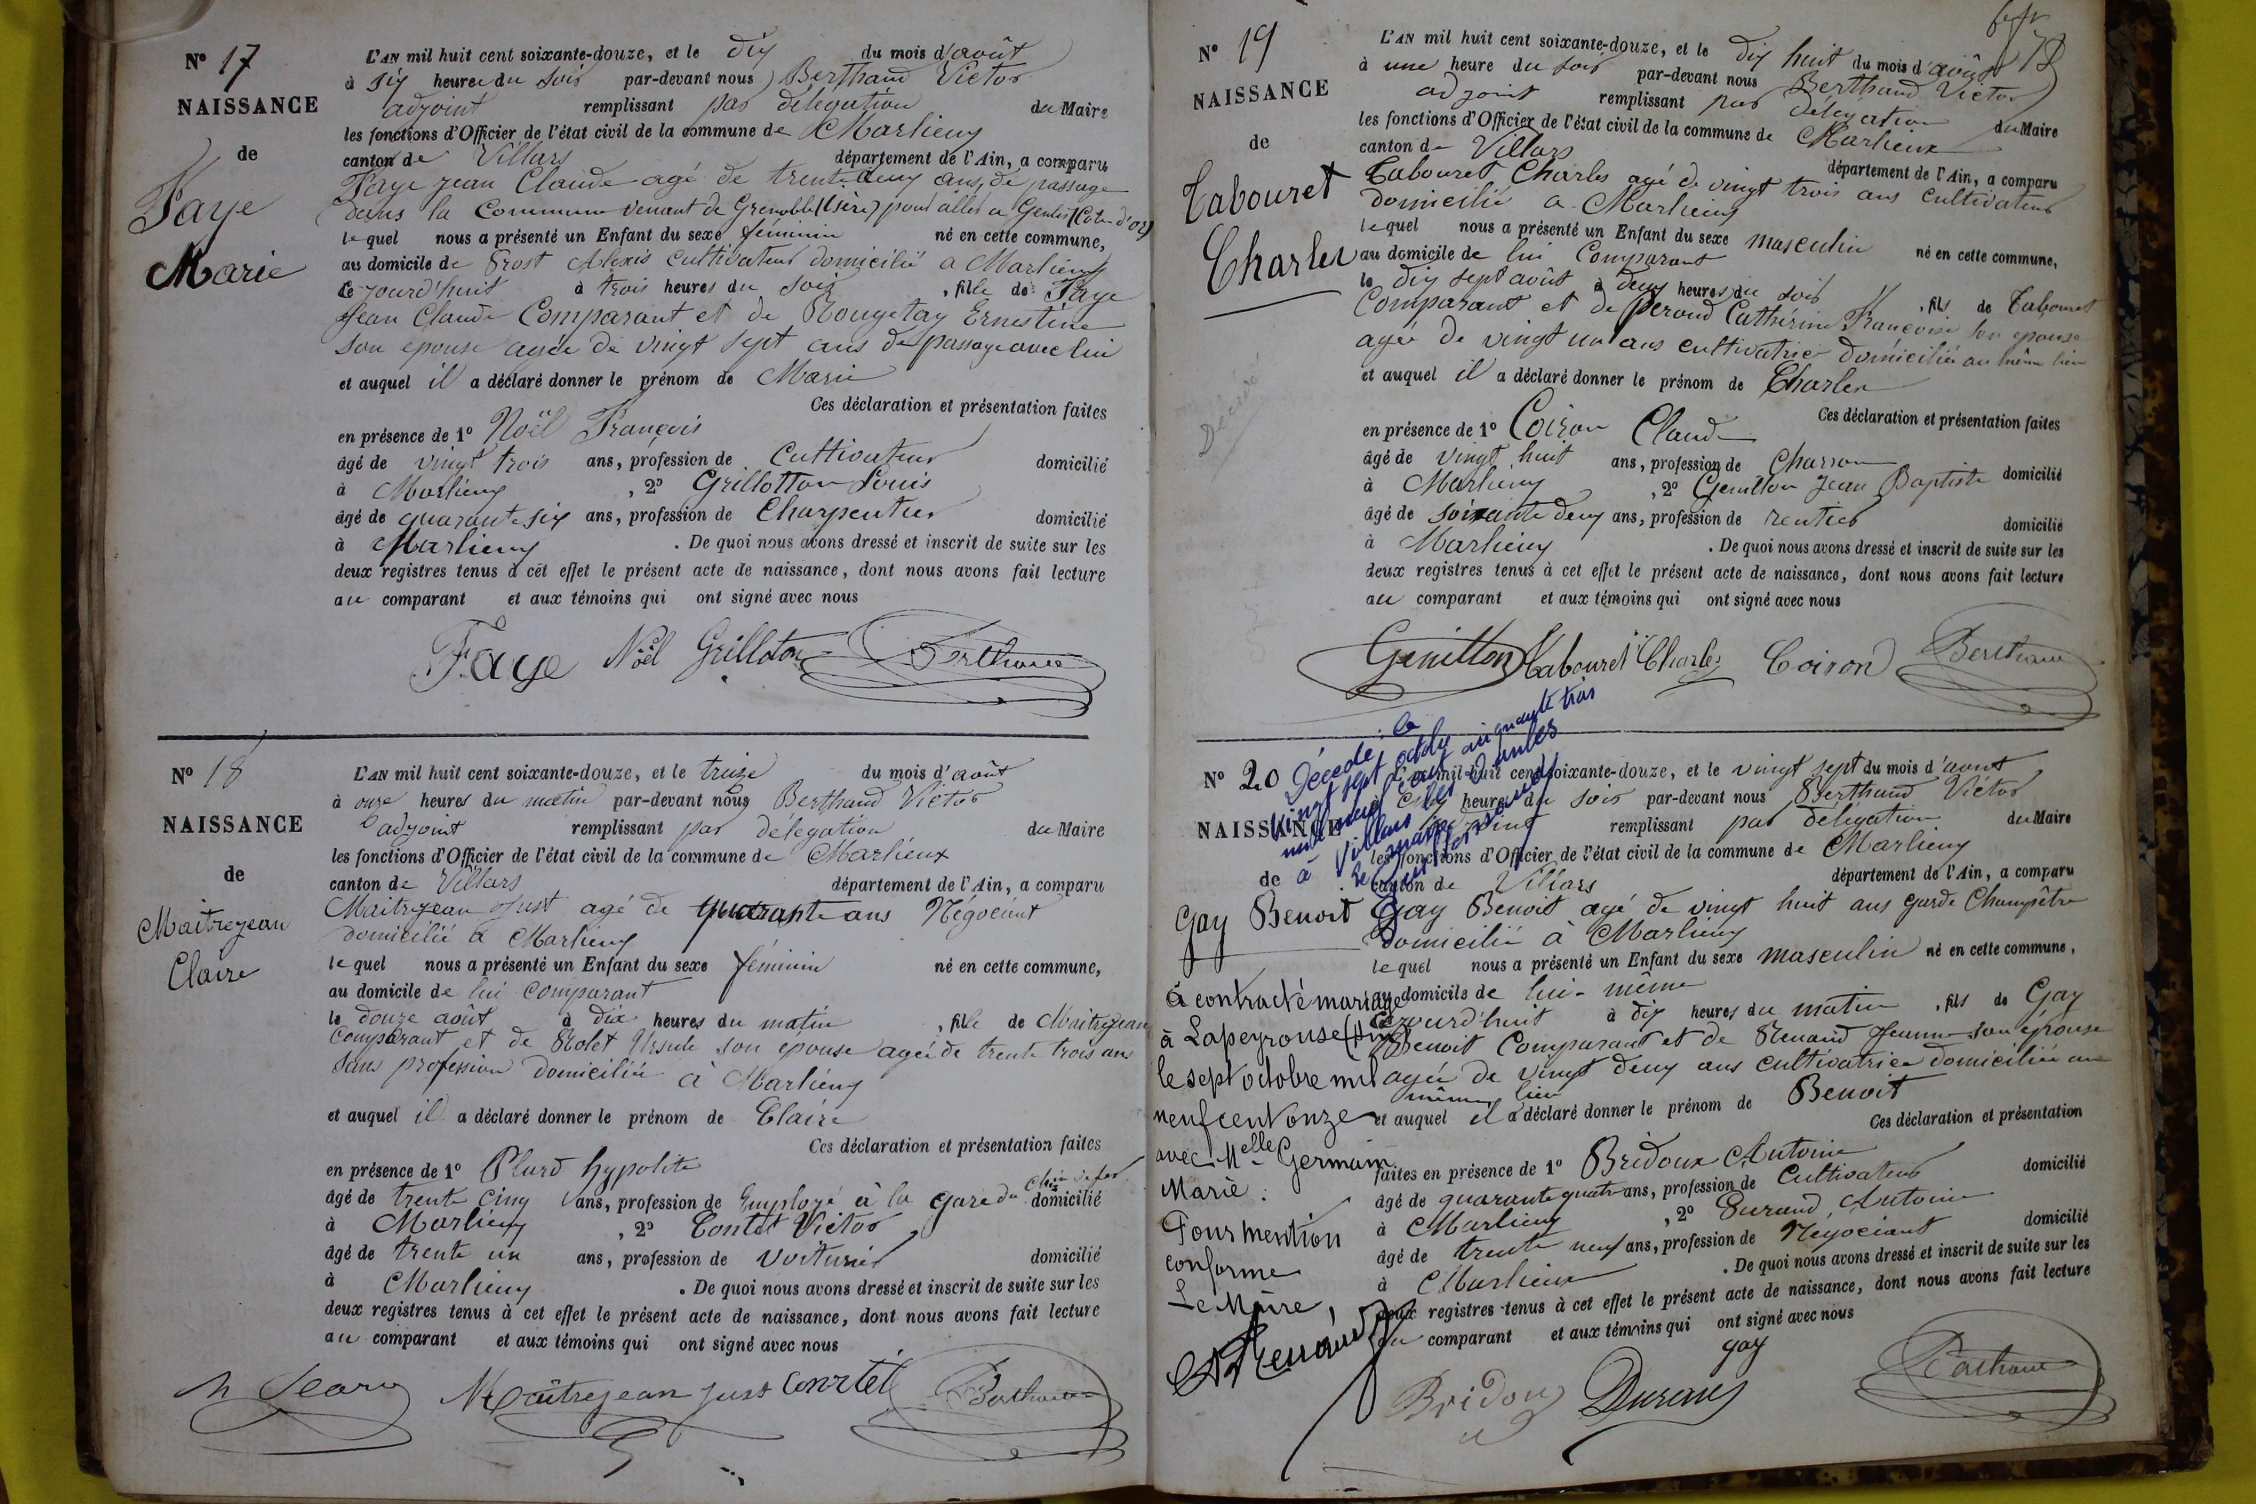 N° 17
NAISSANCE
de
Faye
Marie
L'AN mil huit cent soixante-douze, et le dix du mois d'août
à six heures du soir par-devant nous Berthaud Victor
adjoint remplissant par délégation du Maire
les fonctions d'Officier de l'état civil de la commune de Marlieux
canton de Villars département de l'Ain, a comparu
Faye Jean Claude agé de trente deux ans, de passage
dans la Commune venant de Grenoble (Isère) pour aller a Genlis (Côte d'Or)
lequel nous a présenté un Enfant du sexe feminin né en cette commune,
au domicile de Prost Alexis Cultivateur domicilié a Marlieux
ce jourd'huit à trois heures du soir, fille de Faye
Jean Claude Comparant et de Rougetay Ernestine
son epouse agée de vingt sept ans de passage avec lui
et auquel il a déclaré donner le prénom de Marie
Ces déclaration et présentation faites
en présence de 1° Noël François
âgé de vingt trois ans, profession de Cultivateur domicilié
à Marlieux, 2° Grillotton Louis
âgé de quarante six ans, profession de Charpentier domicilié
à Marlieux. De quoi nous avons dressé et inscrit de suite sur les
deux registres tenus à cet effet le présent acte de naissance, dont nous avons fait lecture
au comparant et aux témoins qui ont signé avec nous
Faye Noël Grilloton Berthaud
N° 18
NAISSANCE
de
Maitrejean
Claire
L'AN mil huit cent soixante-douze, et le treize du mois d'août
à onze heures du matin par-devant nous Berthaud Victor
adjoint remplissant par délégation du Maire
les fonctions d'Officier de l'état civil de la commune de Marlieux
canton de Villars département de l'Ain, a comparu
Maitrejean Just agé de quarante ans Négociant
domicilié à Marlieux
lequel nous a présenté un Enfant du sexe féminin né en cette commune,
au domicile de lui comparant
le douze août à dix heures du matin, fille de Maitrejean
Comparant et de Rolet Ursule son epouse agée de trente trois ans
sans profession domiciliée à Marlieux
et auquel il a déclaré donner le prénom de Claire
Ces déclaration et présentation faites
en présence de 1° Plurd hypolite
âgé de trente cinq ans, profession de Employé à la gare du chin de fer domicilié
à Marlieux, 2° Contet Victor
âgé de trente un ans, profession de Voiturier domicilié
à Marlieux. De quoi nous avons dressé et inscrit de suite sur les
deux registres tenus à cet effet le présent acte de naissance, dont nous avons fait lecture
au comparant et aux témoins qui ont signé avec nous
Maîtrejean Just Contet Berthaud
78
N° 19
NAISSANCE
de
Tabouret
Charles
Décédé
L'AN mil huit cent soixante-douze, et le dix huit du mois d'août
à une heure du soir par-devant nous Berthaud Victor
adjoint remplissant par délégation du Maire
les fonctions d'Officier de l'état civil de la commune de Marlieux
canton de Villars département de l'Ain, a comparu
Tabouret Charles agé de vingt trois ans cultivateur
domicilié a Marlieux
lequel nous a présenté un Enfant du sexe masculin né en cette commune,
au domicile de lui Comparant
le dix sept août à deux heures du soir, fils de Tabouret
Comparant et de Peroud Cathérine Françoise son epouse
agée de vingt un ans cultivatrice domiciliée au même lieu
et auquel il a déclaré donner le prénom de Charles
Ces déclaration et présentation faites
en présence de 1° Coiron Claude
âgé de vingt huit ans, profession de Charron domicilié
à Marlieux, 2° Genillon Jean Baptiste
âgé de soixante deux ans, profession de rentier domicilié
à Marlieux. De quoi nous avons dressé et inscrit de suite sur les
deux registres tenus à cet effet le présent acte de naissance, dont nous avons fait lecture
au comparant et aux témoins qui ont signé avec nous
Genillon Tabouret Charles Coiron Berthaud
N° 20
NAISSANCE
de
Gay Benoit
Décédé le
vingt sept octobre
mil neuf cent cinquante trois
à Villars les Dombes
A contracté mariage
à Lapeyrouse (Ain)
le sept octobre mil
neuf cent onze
avec Melle Germain
Marie.
Pour mention
conforme
Le Maire,
L'AN mil huit cent soixante-douze, et le vingt sept du mois d'aout
à cinq heures du soir par-devant nous Berthaud Victor
adjoint remplissant par délégation du Maire
les fonctions d'Officier de l'état civil de la commune de Marlieux
canton de Villars département de l'Ain, a comparu
Gay Benoit agé de vingt huit ans garde Champêtre
domicilié à Marlieux
lequel nous a présenté un Enfant du sexe masculin né en cette commune,
au domicile de lui-même
ce jourd'huit à dix heures du matin, fils de Gay
Benoit Comparant et de Renaud Jeanne son épouse
agée de vingt deux ans cultivatrice domiciliée au
même lieu
et auquel il a déclaré donner le prénom de Benoit
Ces déclaration et présentation
faites en présence de 1° Bridoux Antoine
âgé de quarante quatre ans, profession de Cultivateur domicilié
à Marlieux, 2° Durand Antoine
âgé de trente neuf ans, profession de Négociant domicilié
à Marlieux. De quoi nous avons dressé et inscrit de suite sur les
deux registres tenus à cet effet le présent acte de naissance, dont nous avons fait lecture
au comparant et aux témoins qui ont signé avec nous
gay
Bridoux Durand Berthaud